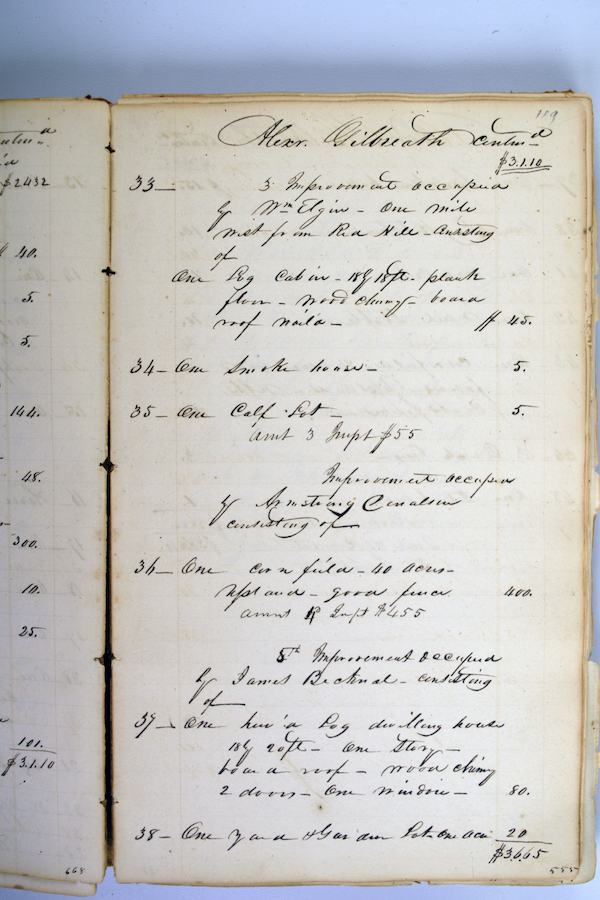 contin-d
$2432
$ 40.
5.
5.
144.
48.
300.
10.
25.
101.
$3.1.10
668
119
Alexr. Gilbreath contin-d
$3.1.10
33 — 3 Improvement occupied
by Wm Elgin - One mile
west from Red Hill - Consisting
of
One Log Cabin - 18 by 18 ft - plank
floor - wood chimy - board
roof nail'd - $ 45.
34 - One Smoke house - 5.
35 - One Calf Lot - 5.
amt 3 Impt $55
Improvement occupied
by Armstrong
consisting of
36 - One corn field - 40 acres -
upland - good fence 400.
amnt Impt $455
5th Improvement occupied
by James - consisting
of
37 - One hew'd Log dwelling house
18 by 20 ft - One Story -
board roof - wood chimy
2 doors - One window - 80.
38 - One yard & Garden Lot one acre 20
$3665
555